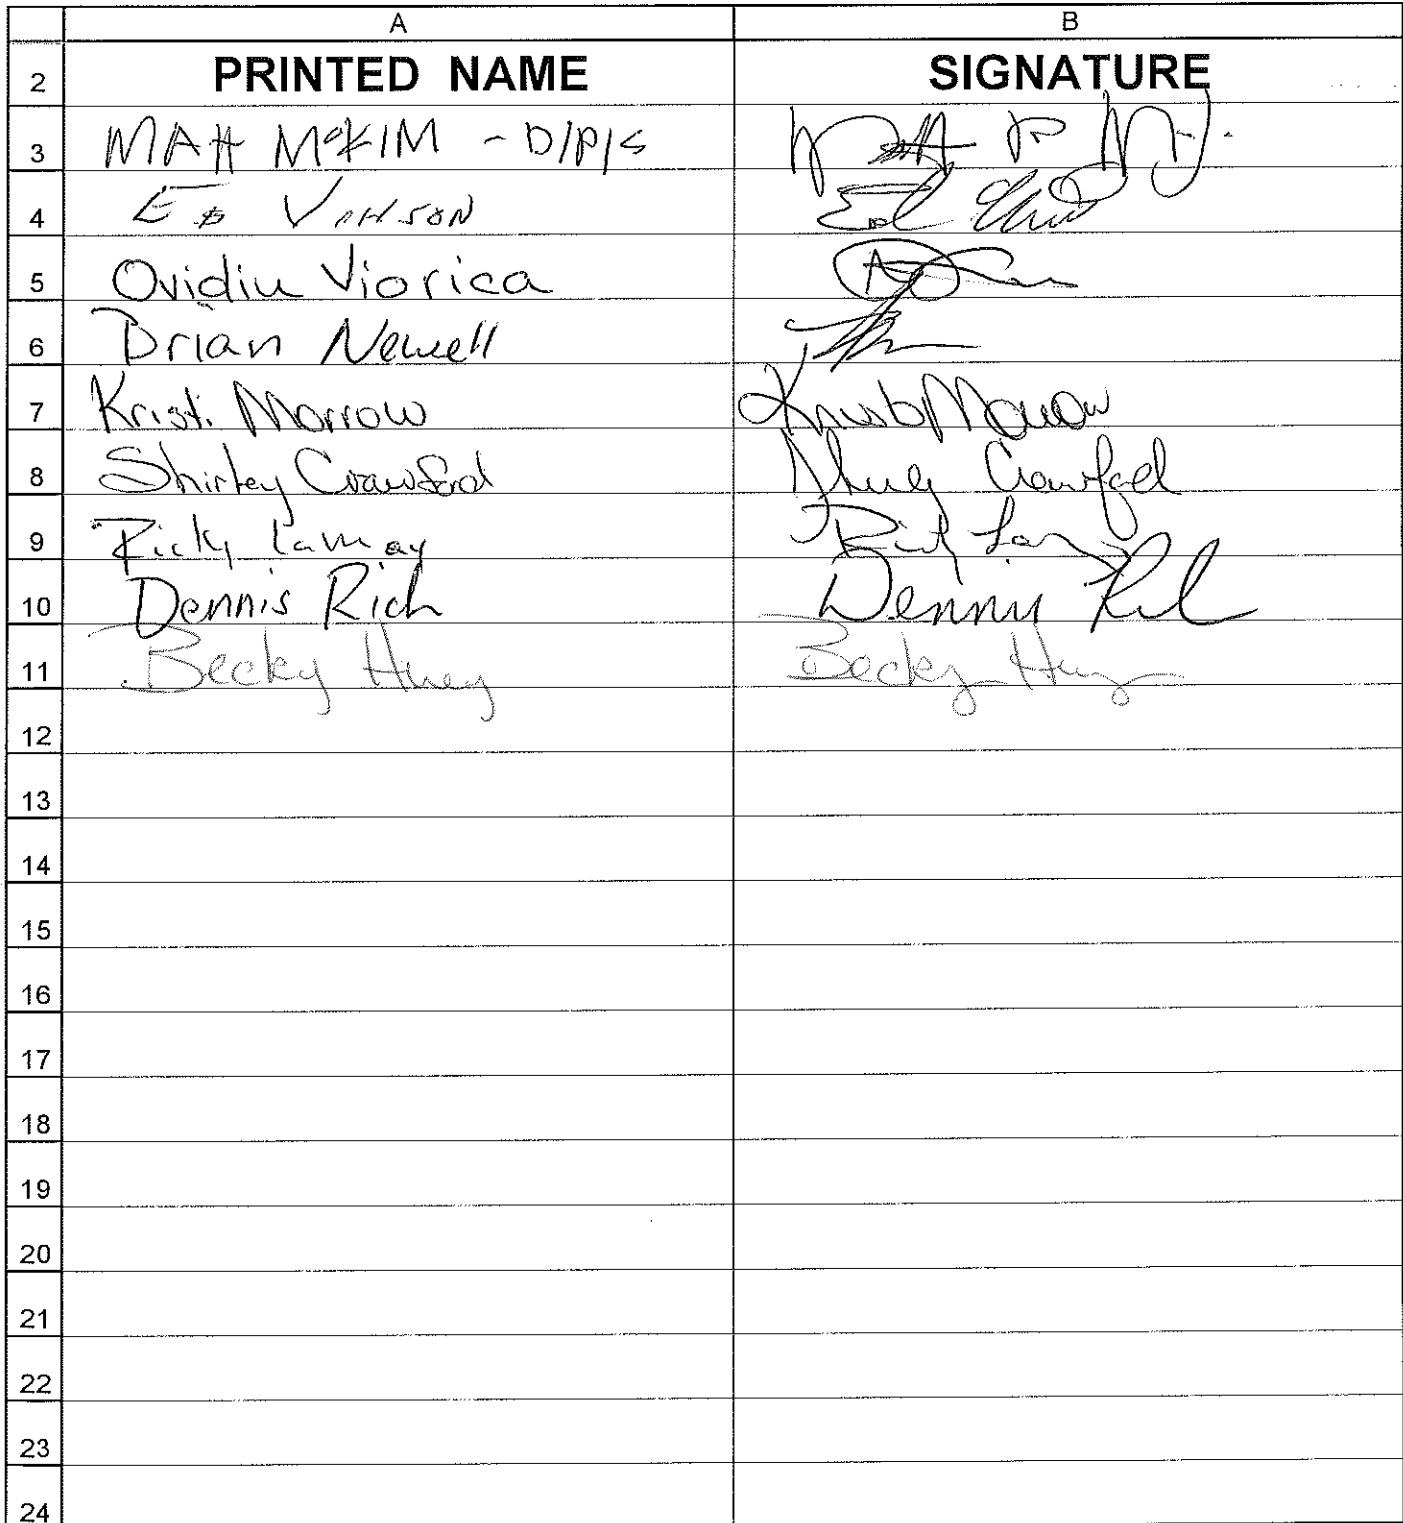 A B
2 PRINTED NAME SIGNATURE
3 MATT McKIM - D/P/S
4 ED VINSON
5 Ovidiu Viorica
6 Brian Newell
7 Kristi Morrow Kristi Morrow
8 Shirley Crawford Shirley Crawford
9 Ricky Lamay
10 Dennis Rich Denny
11 Becky Huey Becky Huey
12
13
14
15
16
17
18
19
20
21
22
23
24